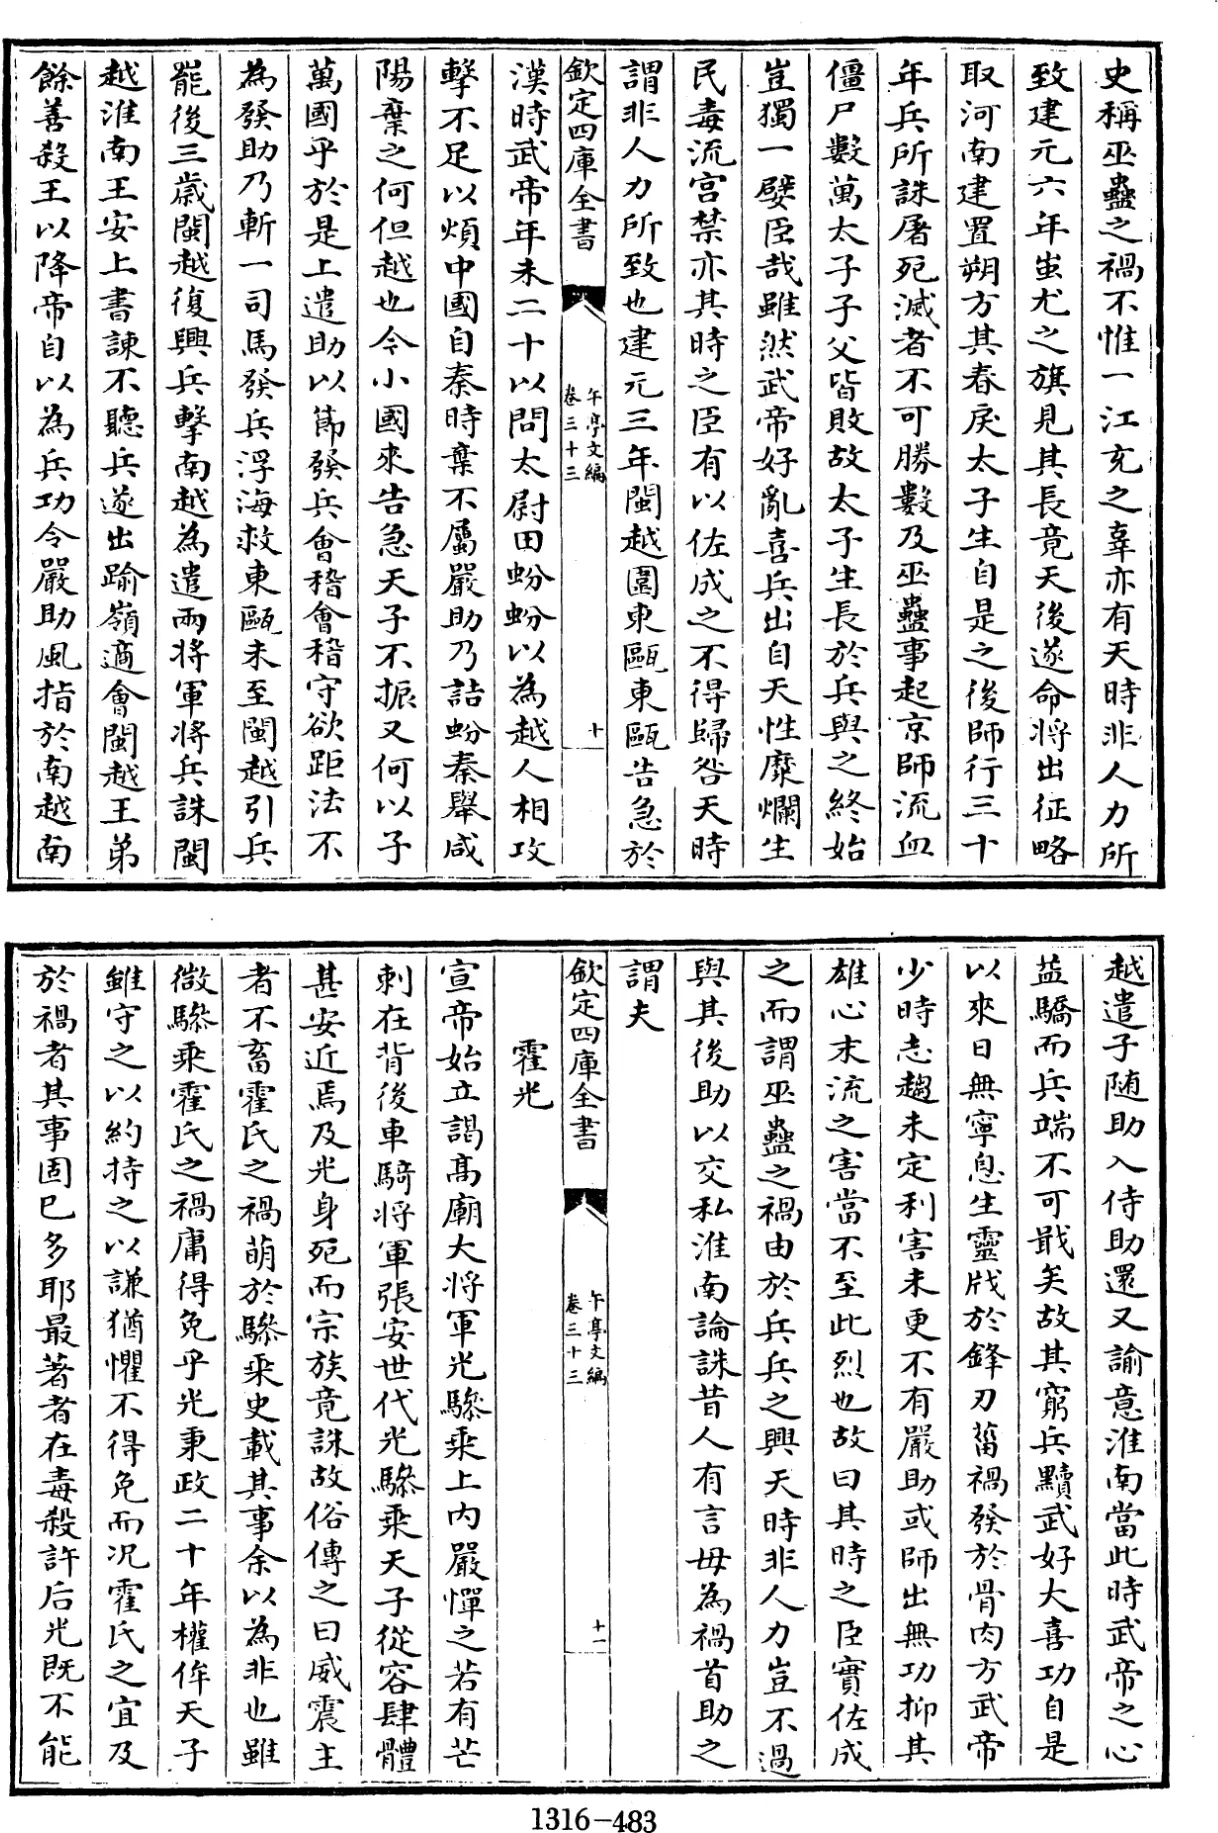 史稱巫蠱之禍不惟一江充之辜亦有天時非人力所
致建元六年蚩尤之旗見其長竟天後遂命將出征略
取河南建置朔方其春戾太子生自是之後師行三十
年兵所誅屠死滅者不可勝數及巫蠱事起京師流血
僵尸數萬太子子父皆敗故太子生長於兵與之終始
豈獨一嬖臣哉雖然武帝好亂喜兵出自天性糜爛生
民毒流宫禁亦其時之臣有以佐成之不得歸咎天時
謂非人力所致也建元三年閩越圍東甌東甌告急於
欽定四庫全書
午亭文編
卷三十三
十
漢時武帝年未二十以問太尉田蚡蚡以為越人相攻
擊不足以煩中國自秦時棄不屬嚴助乃詰蚡秦舉咸
陽棄之何但越也今小國來告急天子不振又何以子
萬國乎於是上遣助以節發兵會稽會稽守欲距法不
為發助乃斬一司馬發兵浮海救東甌未至閩越引兵
罷後三歲閩越復興兵擊南越為遣兩將軍將兵誅閩
越淮南王安上書諫不聽兵遂出踰嶺適會閩越王弟
餘善殺王以降帝自以為兵功令嚴助風指於南越南
越遣子隨助入侍助還又諭意淮南當此時武帝之心
益驕而兵端不可戢矣故其窮兵黷武好大喜功自是
以來日無寧息生靈戕於鋒刃菑禍發於骨肉方武帝
少時志趨未定利害未更不有嚴助或師出無功抑其
雄心末流之害當不至此烈也故曰其時之臣實佐成
之而謂巫蠱之禍由於兵兵之興天時非人力豈不過
與其後助以交私淮南論誅昔人有言毋為禍首助之
謂夫
欽定四庫全書
午亭文編
卷三十三
十一
霍光
宣帝始立謁髙廟大將軍光驂乗上内嚴憚之若有芒
刺在背後車騎將軍張安世代光驂乗天子從容肆體
甚安近焉及光身死而宗族竟誅故俗傳之曰威震主
者不畜霍氏之禍萌於驂乗史載其事余以為非也雖
微驂乗霍氏之禍庸得免乎光秉政二十年權侔天子
雖守之以約持之以謙猶懼不得免而况霍氏之宜及
於禍者其事固已多耶最著者在毒殺許后光既不能
1316-483